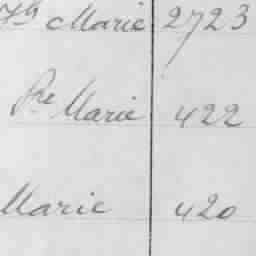 Marie 2723
Pre Marie 422
Marie 420